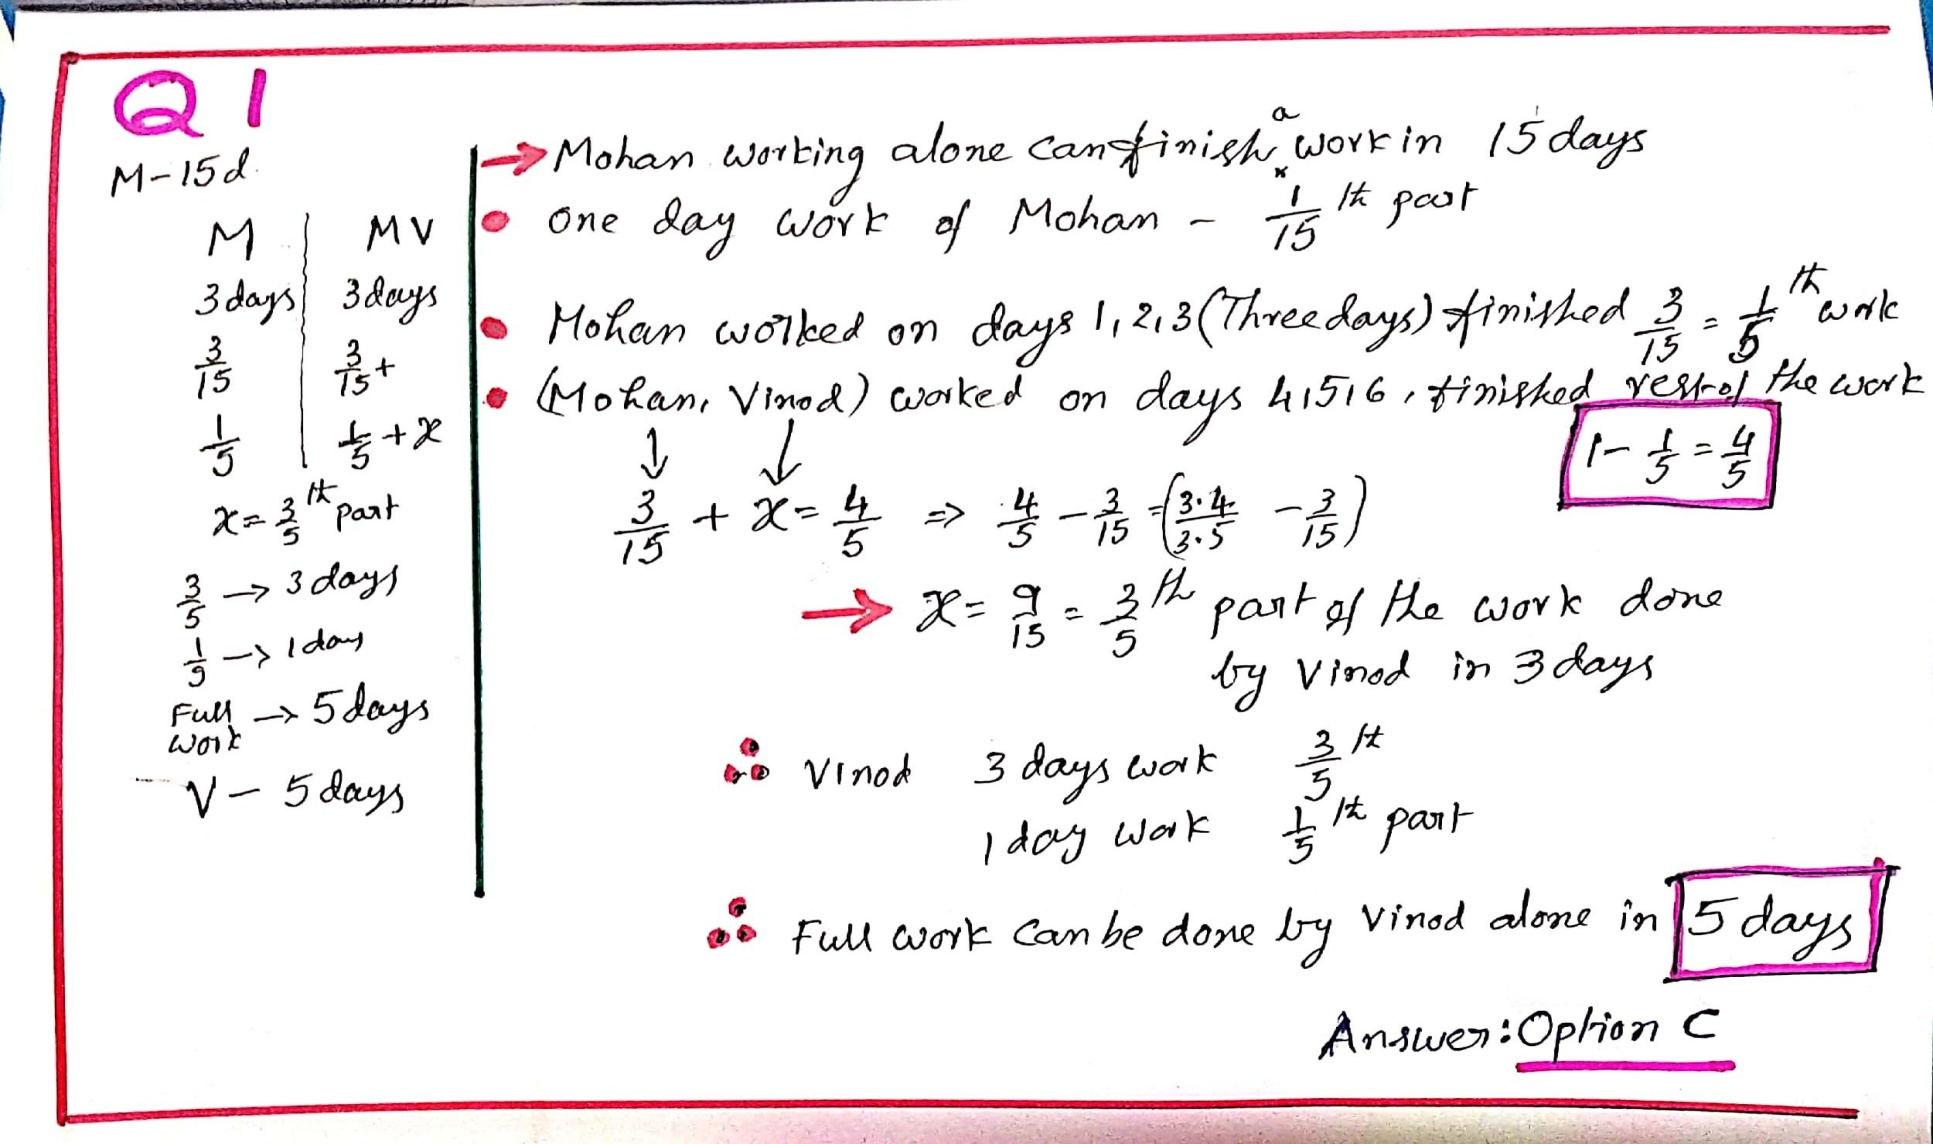 Q1
M-15d.
M | MV
3 days | 3 days
3/15 | 3/15 +
1/5 | 1/5 + x
x = 3/5 th part
3/5 → 3 days
1/5 → 1 day
Full work → 5 days
V - 5 days
→ Mohan working alone can finish a work in 15 days
• one day work of Mohan - 1/15 th part
• Mohan worked on days 1,2,3 (Three days) finished 3/15 = 1/5 th work
• (Mohan, Vinod) worked on days 4,5,6, finished rest of the work
1 - 1/5 = 4/5
↓ ↓
3/15 + x = 4/5 ⇒ 4/5 - 3/15 = (3·4/3·5 - 3/15)
→ x = 9/15 = 3/5 th part of the work done
by Vinod in 3 days
∴ Vinod 3 days work 3/5 th
1 day work 1/5 th part
∴ Full work can be done by Vinod alone in 5 days
Answer: Option C